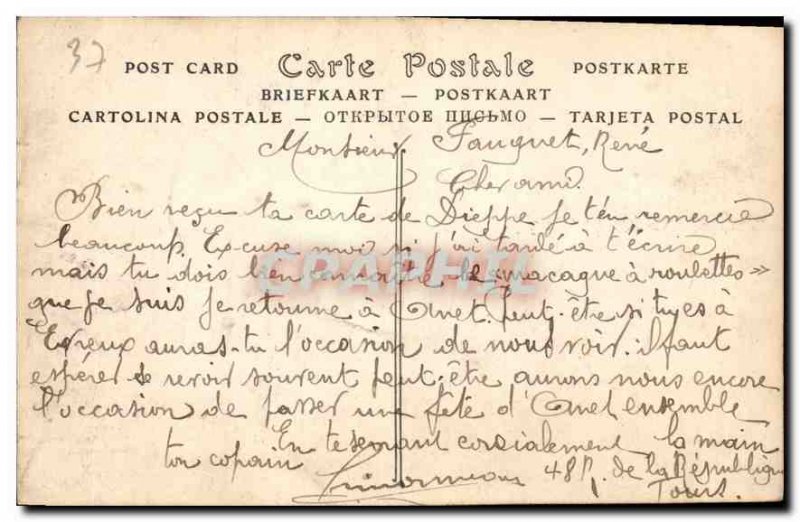 37
POST CARD Carte Postale POSTKARTE
BRIEFKAART — POSTKAART
CARTOLINA POSTALE — ОТКРЫТОЕ ПИСЬМО — TARJETA POSTAL
Monsieur Fauquet, René
Cher ami.
Bien reçu ta carte de Dieppe je t'en remercie
beaucoup. Excuse moi si j'ai tardé à t'écrire
mais tu dois bien le « macaque à roulettes »
que je suis je retourne à Anet. Peut-être si tu es à
Evreux auras-tu l'occasion de nous voir. il faut
espérer se revoir souvent peut-être aurons nous encore
l'occasion de passer une fête d'Anet ensemble
En te serrant cordialement la main
ton copain 48 R. de la République
Tours.
CPAPHIL